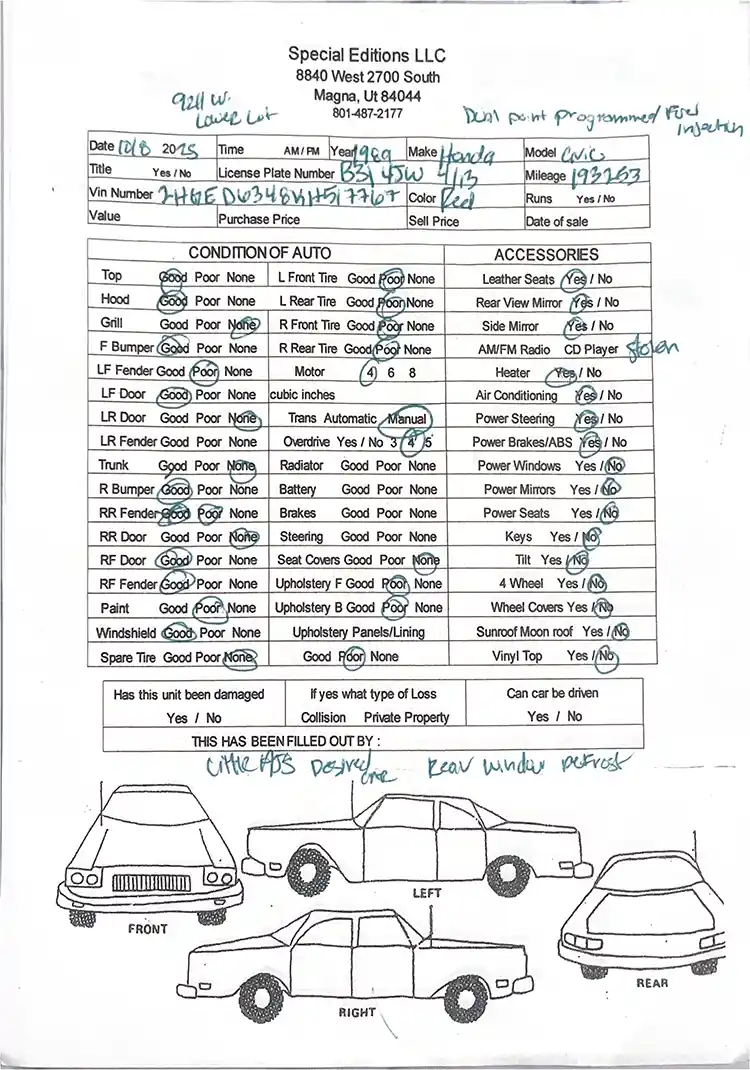 Special Editions LLC
8840 West 2700 South
Magna, Ut 84044
801-487-2177
9211 W.
Lower Lot
Dual point programmed Fuel
Injection
Date 10/8 2025 Time AM / PM Year 1989 Make Honda Model Civic
Title Yes / No License Plate Number B331 4JW 4/13 Mileage 193253
Vin Number Color Red Runs Yes / No
Value Purchase Price Sell Price Date of sale
CONDITION OF AUTO ACCESSORIES
Top Good Poor None L Front Tire Good Poor None Leather Seats Yes / No
Hood Good Poor None L Rear Tire Good Poor None Rear View Mirror Yes / No
Grill Good Poor None R Front Tire Good Poor None Side Mirror Yes / No
F Bumper Good Poor None R Rear Tire Good Poor None AM/FM Radio CD Player stolen
LF Fender Good Poor None Motor 4 6 8 Heater Yes / No
LF Door Good Poor None cubic inches Air Conditioning Yes / No
LR Door Good Poor None Trans Automatic Manual Power Steering Yes / No
LR Fender Good Poor None Overdrive Yes / No 3 4 5 Power Brakes/ABS Yes / No
Trunk Good Poor None Radiator Good Poor None Power Windows Yes / No
R Bumper Good Poor None Battery Good Poor None Power Mirrors Yes / No
RR Fender Good Poor None Brakes Good Poor None Power Seats Yes / No
RR Door Good Poor None Steering Good Poor None Keys Yes / No
RF Door Good Poor None Seat Covers Good Poor None Tilt Yes / No
RF Fender Good Poor None Upholstery F Good Poor None 4 Wheel Yes / No
Paint Good Poor None Upholstery B Good Poor None Wheel Covers Yes / No
Windshield Good Poor None Upholstery Panels/Lining Sunroof Moon roof Yes / No
Spare Tire Good Poor None Good Poor None Vinyl Top Yes / No
Has this unit been damaged If yes what type of Loss Can car be driven
Yes / No Collision Private Property Yes / No
THIS HAS BEEN FILLED OUT BY :
Rear window defrost
FRONT
LEFT
RIGHT
REAR